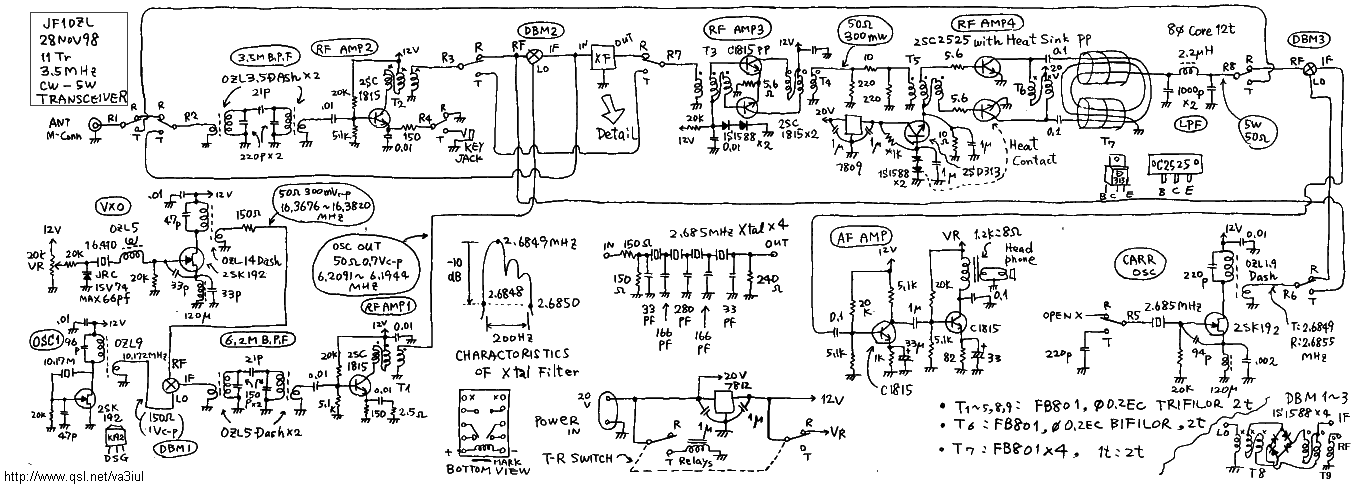 JF1OZL
28NOV98
11 Tr
3.5MHz
CW-5W
TRANSCEIVER
ANT
M-Conn
R1
R2
3.5M B.P.F
OZL3.5Dash×2
21p
220p×2
RF AMP2
12V
2SC
1815
T2
20k
.01
5.1k
R4
150
0.01
KEY
JACK
R3
R
T
DBM2
RF
IF
LO
IN
XF
OUT
Detail
R
T
R7
RF AMP3
T3
C1815PP
T4
5.6
Ω
20k
12V
1S1588
0.01
×2
2SC
1815×2
50Ω
300mW
10
220
220
7809
1μ
1μ
1k
1S1588
×2
1μ
2SD313
RF AMP4
2SC2525 with Heat Sink PP
T5
5.6
5.6
10
Ω
1μ
Heat
Contact
T6
20
V
0.1
0.1
T7
8∅ Core 12t
2.2μH
1000p
×2
LPF
R8
R
T
5W
50Ω
DBM3
RF
IF
LO
D
313
B C E
C2525
B C E
VXO
.01
12V
47p
OZL5
150Ω
50Ω 300mVp-p
16.3676~16.3820
MHz
12V
20k
VR
20k
16.410
JRC
15V74
MAX66pf
20k
33p
120μ
33p
OZL14Dash
2SK192
OSC OUT
50Ω 0.7Vc-p
6.2091~6.1944
MHz
OSC1
.01
12V
96
p
OZL9
10.17M
10.172MHz
20k
47p
2SK
192
K192
DSG
150Ω
1Vc-p
RF
IF
LO
DBM1
6.2M B.P.F
21p
150
p×2
OZL5Dash×2
RF AMP1
12V
0.01
20k
2SC
1815
T1
0.01
5.1k
0.01
150
2.5Ω
-10
dB
2.6849MHz
2.6848
2.6850
200Hz
CHARACTORISTICS
OF Xtal Filter
MARK
BOTTOM VIEW
2.685MHz Xtal×4
IN
150Ω
OUT
150
Ω
33
PF
166
PF
280
PF
166
PF
33
PF
240
Ω
20
V
POWER
IN
20V
7812
1μ
1μ
12V
R
T
VR
T-R SWITCH
R
T
Relays
AF AMP
12V
VR
1.2k:8Ω
Head
phone
5.1k
20k
20
K
0.1
0.1
1μ
C1815
5.1k
1k
33μ
5.1k
82
33
C1815
CARR
OSC
12V
0.01
220
p
OZL1.9
Dash
R6
R
T
2.685MHz
OPEN X
R
T
R5
220p
2SK192
94
p
20k
120μ
.002
T:2.6849
R:2.6855
MHz
• T1~5,8,9: FB801, ∅0.2EC TRIFILOR 2t
• T6: FB801, ∅0.2EC BIFILOR, 2t
• T7: FB801×4, 1t:2t
DBM1~3
1S1588×4
LO
IF
RF
T8
T9
http://www.qsl.net/va3iul